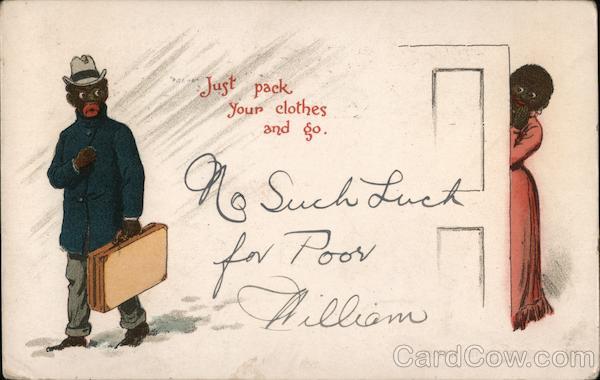 Just pack
your clothes
and go.
No Such Luck
for Poor
William
CardCow.com